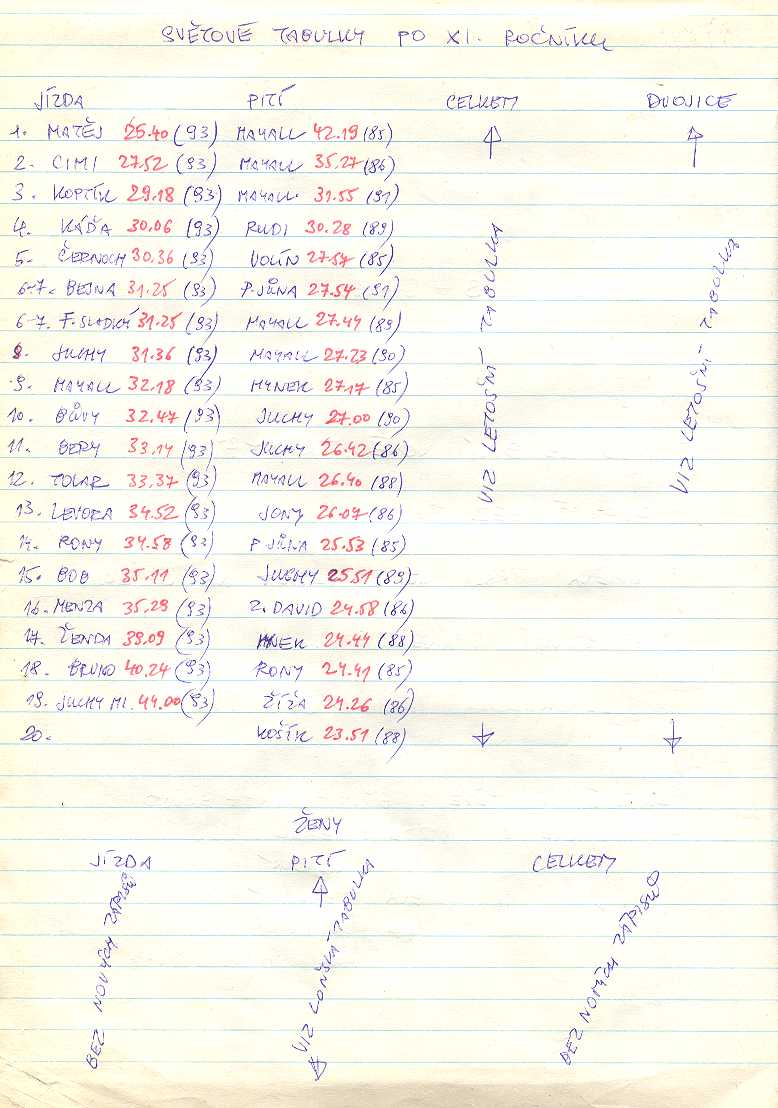 SVĚTOVÉ TABULKY PO XI. ROČNÍKU
JÍZDA PITÍ CELKEM DVOJICE
1. MATĚJ 25.40 (93) MAYALL 42.19 (85)
2. CIMI 27.52 (93) MAYALL 35.27 (86)
3. KOPTÍK 29.18 (93) MAYALL 31.55 (91)
4. KÁĎA 30.06 (93) RUDI 30.28 (89)
5. ČERNOCH 30.36 (93) VOLÍN 27.57 (85)
6-7. BEJNA 31.25 (93) P.JŮNA 27.54 (91)
6-7. F.SLADKÝ 31.25 (93) MAYALL 27.44 (89)
8. JUCHY 31.36 (93) MAYALL 27.23 (90)
9. MAYALL 32.18 (93) HYNEK 27.17 (85)
10. BŮVY 32.47 (93) JUCHY 27.00 (90)
11. BERY 33.14 (93) JUCHY 26.42 (86)
12. TOLAR 33.37 (93) MAYALL 26.40 (88)
13. LEVORA 34.52 (93) JONY 26.07 (86)
14. RONY 34.58 (93) P.JŮNA 25.53 (85)
15. BOB 35.11 (93) JUCHY 25.51 (89)
16. MENZA 35.29 (93) Z. DAVID 24.58 (86)
17. ŽENDA 39.09 (93) HYNEK 24.44 (88)
18. BRUNO 40.24 (93) RONY 24.41 (85)
19. JUCHY MI. 44.00 (93) ŽÍŽA 24.26 (86)
20. KOŠTK 23.51 (88)
VIZ LETOŠNÍ TABULKA
VIZ LETOŠNÍ TABULKA
ŽENY
JÍZDA PITÍ CELKEM
BEZ NOVÝCH ZÁPISŮ
VIZ LOŇSKÁ TABULKA
BEZ NOVÝCH ZÁPISŮ